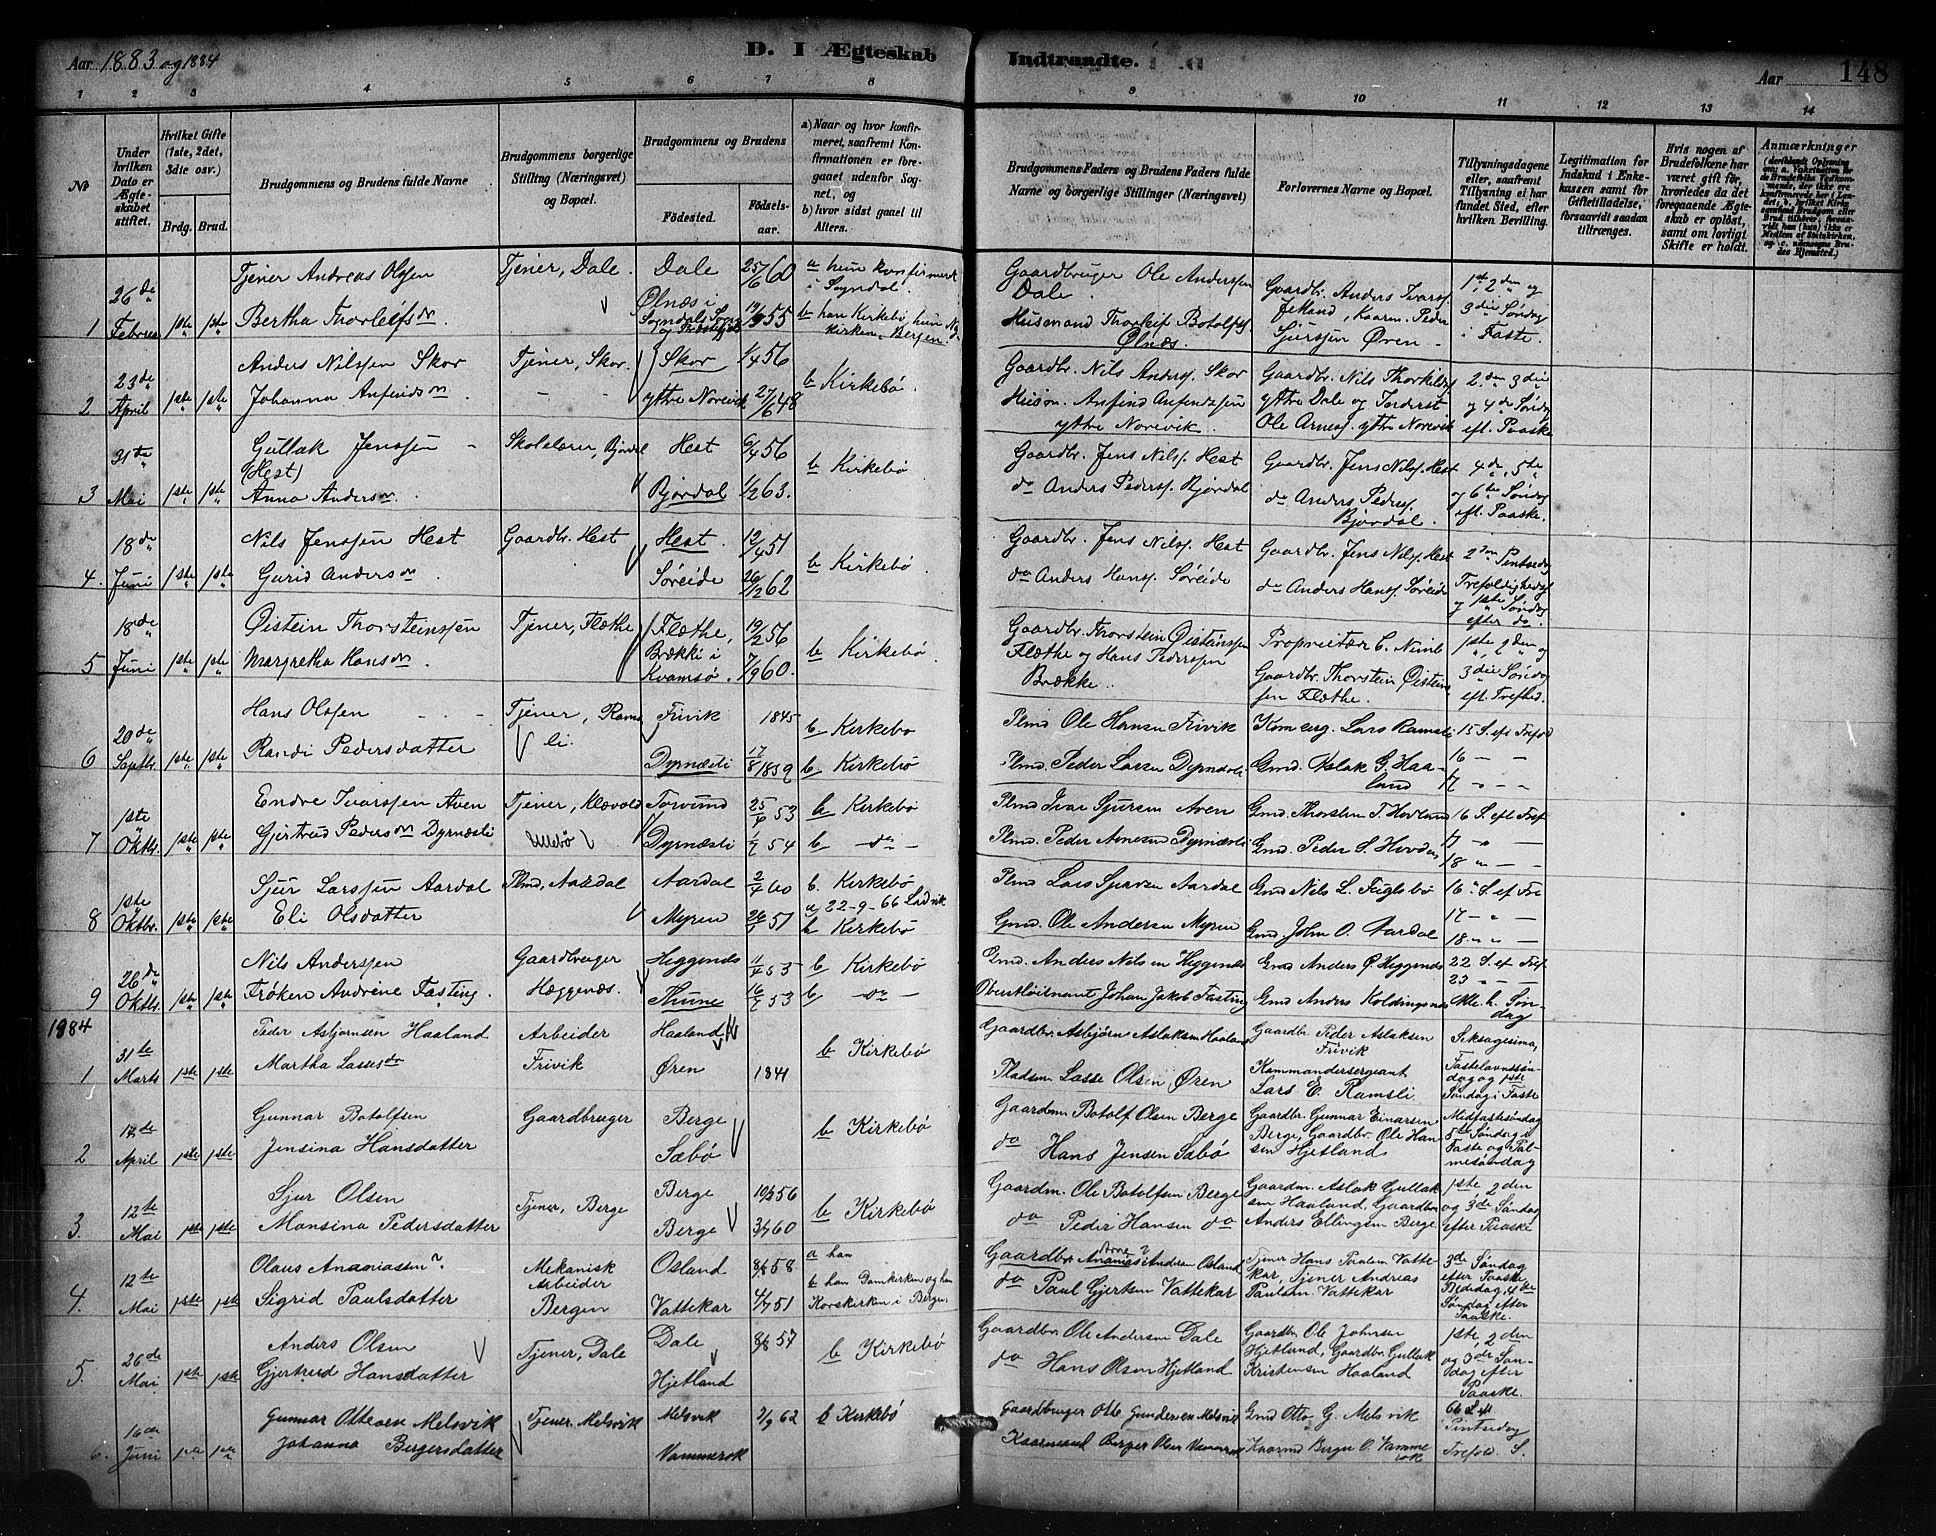 Aar 1883 og 1884
D. I Ægteskab Indtraadte.
Aar 148
1 2 3 4 5 6 7 8 9 10 11 12 13 14
No
Under hvilken Dato er Ægteskabet stiftet.
Hvilket Gifte (1ste, 2det, 3die osv.)
Brdg. Brud.
Brudgommens og Brudens fulde Navne
Brudgommens borgerlige Stilling (Næringsvei) og Bopæl.
Brudgommens og Brudens
Fødested. Fødselsaar.
a) Naar og hvor konfirmeret, saafremt Konfirmationen er foregaaet udenfor Sognet, og
b) hvor sidst gaaet til Alters.
Brudgommens Faders og Brudens Faders fulde Navne og borgerlige Stillinger (Næringsvei)
Forlovernes Navne og Bopæl.
Tillysningsdagene eller, saafremt Tillysning ei har fundet Sted, efter hvilken Bevilling.
Legitimation for Indskud i Enkekassen samt for Giftetilladelse, forsaavidt saadan tiltrænges.
Hvis nogen af Brudefolkene har været gift før, hvorledes da det foregaaende Ægteskab er opløst, samt om lovligt Skifte er holdt.
Anmærkninger
1 26de Februar 1ste 1ste
Tjener Andreas Olsen Tjener, Dale. Dale 25/6 60 a hun konfirmeret i Sogndal.
Bertha Thorleifsdr. Ølnæs i Sogndals Sogn 55 b han Kirkebø hun Nykirken, Bergen.
Gaardbruger Ole Anderssen Dale. Gaardbr. Anders Ivarss. 1ste, 2den og
Husmand Botolfss. Ølnæs. Peder Sjurssen Øren 3die Søndag i Faste.
2 23de April 1ste 1ste
Anders Nilssen Skor Tjener, Skor. Skor 1/4 56 b Kirkebø.
Johanna Anfindsdr. ytre Norevik 27/6 48
Gaardbr. Nils Anderss. Skor Gaardbr. Nils Thorkelds. 2den 3die
Husm. Anfind Anfindssen ytre Norevik. ytre Dale og Ole Arness. ytre Norevik og 4de Søndag eft. Paaske
3 31te Mai 1ste 1ste
Gullak Jenssen (Hest) Skolelærer, Bjørdal Hest 6/4 56 b Kirkebø
Anna Andersdr. Bjørdal 1/2 63.
Gaardbr. Jens Nilss. Hest Gaardbr. Jens Nilss. Hest 4de, 5te
do Anders Pederss. Bjørdal do Anders Pederss. Bjørdal. og 6te Søndag eft. Paaske.
4. 18de Juni 1ste 1ste
Nils Jenssen Hest Gaardbr. Hest Hest. 12/4 51 b Kirkebø.
Gurid Andersdr. Søreide 26/12 62
Gaardbr. Jens Nilss. Hest Gaardbr. Jens Nilss. Hest 2den Pintsedag
do Anders Hanss. Søreide do Anders Hanss. Søreide Trefoldighedss. og 1ste Søndag efter do.
5 18de Juni 1ste 1ste
Øistein Thorsteinssen Tjener, Flæthe Flæthe, 19/2 56 b Kirkebø.
Margretha Hansdr. Brække i Kvamsø. 7/9 60.
Gaardbr. Thorstein Øisteinssen Flæthe og Hans Pederssen Brække.
Proprietær C. Gaardbr. Thorstein Øisteinssen Flæthe.
1ste, 2den og 3die Søndag eft. Trefhed.
6 20de Septbr. 1ste 1ste
Hans Olssen Tjener, Ramsli. Frivik 1845 b Kirkebø
Randi Pedersdatter Dyrnæsli 17/8 1859 b Kirkebø
Plmd Ole Hansen Frivik Lars Ramsli 15 S. eft Trefold
Plmd. Peder Larsen Dyrnæsli Gmd. Aslak G. Haaland 16 — — 17 — —
7 1ste Oktbr. 1ste 1ste
Endre Ivarssen Aven Tjener, Torvund 25/4 53 b Kirkebø
Gjertrud Pedersdr Dyrnæsli Dyrnæsli 54 b — do —
Plmd. Ivar Sjursen Aven Gmd. Thorstein T. Hovland 16 S. eft Tref
Plmd. Peder Arnesen Dyrnæsli Gmd. Peder S. 17 — 18 —
8 1ste Oktbr. 1ste 1ste
Sjur Larssen Aardal Plmd, Aardal Aardal 2/4 60 b. Kirkebø
Eli Olsdatter Myren 51 a 22-9-66 Ladvik b Kirkebø
Plmd Lars Sjursen Aardal Gmd Nils L. Fuglsbø 16. S. ef Tre
Gmd. Ole Andersen Myren Gmd. John O. Aardal 17 — 18 —
9 26de Oktbr. 1ste 1ste
Nils Anderssen Gaardbruger Heggenæs 11/4 53 b Kirkebø
Frøken Andrine Fasting. Hæggenæs. Thune 53 b — do —
Gmd. Anders Nilsen Heggenæs Gmd Anders O. Heggenæs 22 S. ef Tref
Oberstløitnant Johan Jakob Fasting Gmd Anders Koldingsnæs 23 — Alle h. Søndag
1884
1 31te Marts 1ste 1ste
Peder Asbjørnsen Haaland Arbeider Haaland b Kirkebø
Martha Lassesdr Frivik Øren 1841
Gaardbr. Asbjørn Aslaksen Haaland Gaardbr. Peder Aslaksen Frivik Seksagesima,
Pladsm Lasse Olsen Øren Kommandersergeant Lars E. Ramsli Fastelavnssøndag og 1ste Søndag i Faste
2 April 1ste 1ste
Gunnar Botolfsen Gaardbruger Berge b Kirkebø
Jensina Hansdatter Sæbø
Gaardm Botolf Olsen Berge Gaardbr. Gunnar Einarsen Midfastesøndag
do Hans Jensen Sæbø Berge, Gaardbr. Ole Hansen Hjetland 5te Søndag i Faste og Palmesøndag
3. 12te Mai 1ste 1ste
Sjur Olsen Tjener, Berge Berge 56 b Kirkebø
Monsina Pedersdatter Berge 60
Gaardm. Ole Botolfsen Berge Gaardm. Aslak Gullaksen Haaland, Gaardbr. 1ste 2den
do Peder Hansen do Anders Ellingsen Berge og 3de Søndag efter Paaske
4. 12te Mai 1ste 1ste
Olaus Ananiassen Mekanisk Arbeider Osland 58 a han
Sigrid Paulsdatter Bergen Vattekar 51 b han Domkirken og hun Korskirken i Bergen.
Gaardbr. Ananias Andersen Osland Tjener Hans Vattekar, Tjener Andreas 3de Søndag efter Paaske,
do Paul Gjertsen Vattekar Paulsen Vattekar Bededag, 4de Søndag efter Paaske.
5. 26de Mai 1ste 1ste
Anders Olsen Tjener, Dale Dale 57 b Kirkebø
Gjertrud Hansdatter Hjetland
Gaardbr Ole Andersen Dale Gaardbr. Ole Johnsen Hjetland, Gaardbr Gullak 1ste 2den
do Hans Olsen Hjetland Kristensen Haaland og 3de Søndag efter Paaske
6. 16de Juni
Gunnar Ottesen Melsvik Tjener, Melsvik Melsvik 62 b Kirkebø
Johanna Bergersdatter Vammersok
Gaardbruger Otte Melsvik Gmd Otto G. Melsvik Pintsedag
Berger Olsen Berger O. Trefold. S.